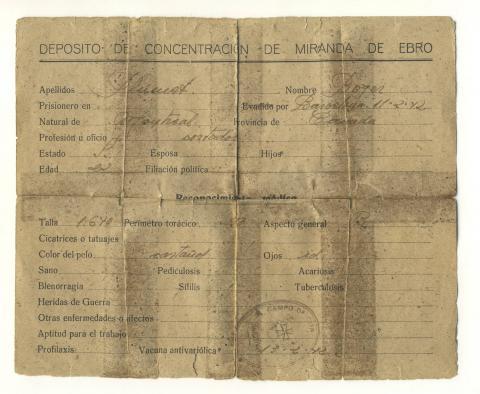 DEPOSITO DE CONCENTRACIÓN DE MIRANDA DE EBRO
Apellidos Nombre Roger
Prisionero en Evadido por Barcelona 11-2-42
Natural de Montreal Provincia de Canada
Profesión u oficio contador
Estado S. Esposa Hijos
Edad 22 Filiación política
Reconocimiento médico
Talla 1.670 Perímetro torácico Aspecto general
Cicatrices o tatuajes
Color del pelo castaño Ojos id
Sano Pediculosis Acariosis
Blenorragia Sífilis Tuberculosis
Heridas de Guerra
Otras enfermedades o afectos
Aptitud para el trabajo
Profilaxis Vacuna antivariólica
CAMPO DE